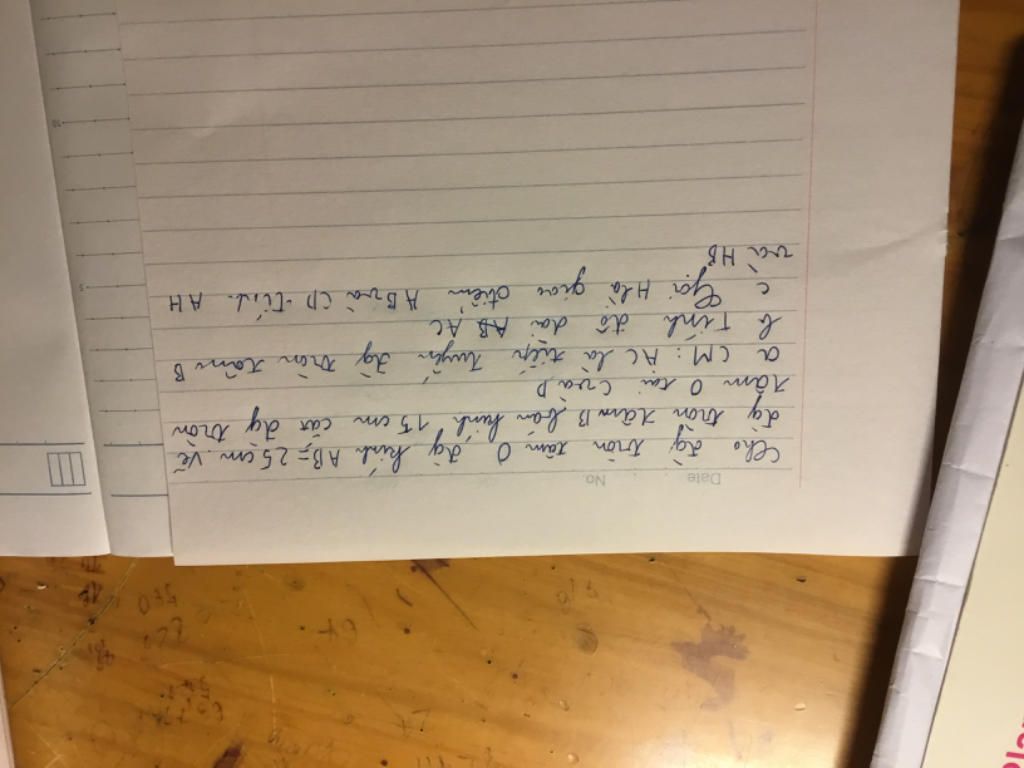 Date No.
Cho đg tròn tâm O đg kính AB = 25 cm. Vẽ
đg tròn tâm B bán kính 15 cm cắt đg tròn
tâm O tại C và D
a CM: AC là tiếp tuyến đg tròn tâm B
b Tính độ dài AB AC
c Gọi H là giao điểm AB và CD. Tính. AH
và HB